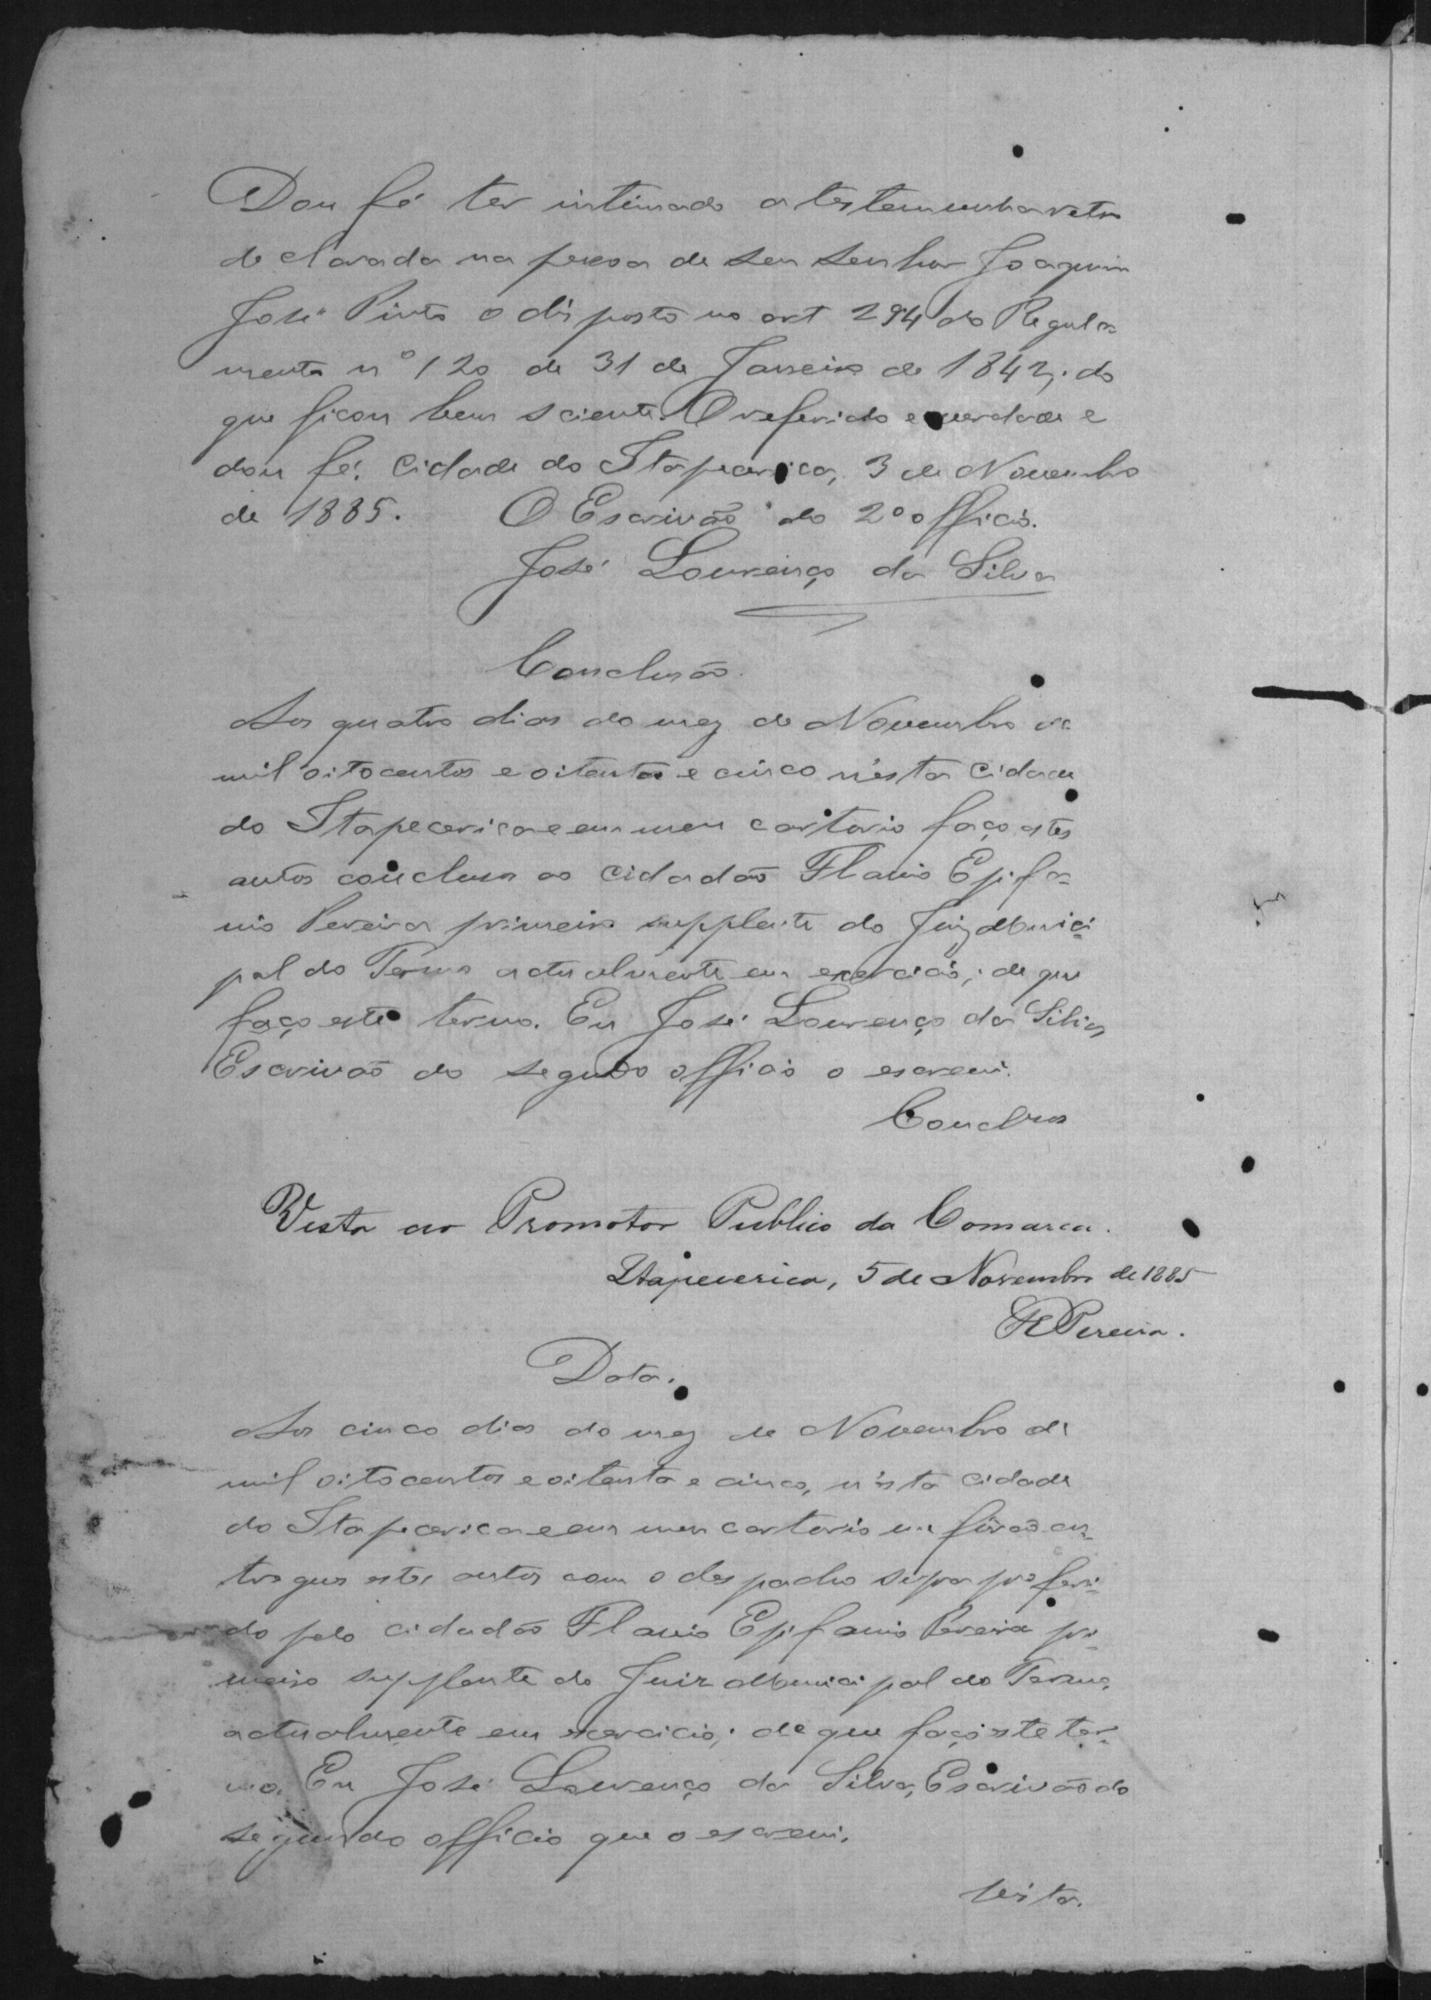 Dou fé ter intimado a testemunha retro
declarada na pessoa de seu senhor Joaquim
José Pinto o disposto no art 294 do Regula-
mento nº 120 de 31 de Janeiro de 1842; do
que ficou bem sciente. O referido e verdade e
dou fé. Cidade do Itapecerica, 3 de Novembro
de 1885. O Escrivão do 2º officio.
José Lourenço da Silva
Conclusão.
Aos quatro dias do mez de Novembro de
mil oitocentos e oitenta e cinco n'esta Cidade
do Itapecerica e em meu cartorio faço estes
autos conclusos ao Cidadão Flavio Epifa-
nio Pereira primeiro supplente do Juiz Munici-
pal do Termo actualmente em exercicio; de que
faço este termo. Eu José Lourenço da Silva
Escrivão do segundo officio o escrevi.
Conclusos
Vista ao Promotor Publico da Comarca.
Itapecerica, 5 de Novembro de 1885
FEPereira.
Data.
Aos cinco dias do mez de Novembro de
mil oitocentos e oitenta e cinco, n'esta cidade
do Itapecerica e em meu cartorio me forão en-
tregues estes autos com o despacho supra proferi-
do pelo cidadão Flavio Epifanio Pereira pri-
meiro supplente do Juiz Municipal do Termo,
actualmente em exercicio; de que faço este ter-
mo. Eu José Lourenço da Silva, Escrivão do
segundo officio que o escrevi.
Vista.